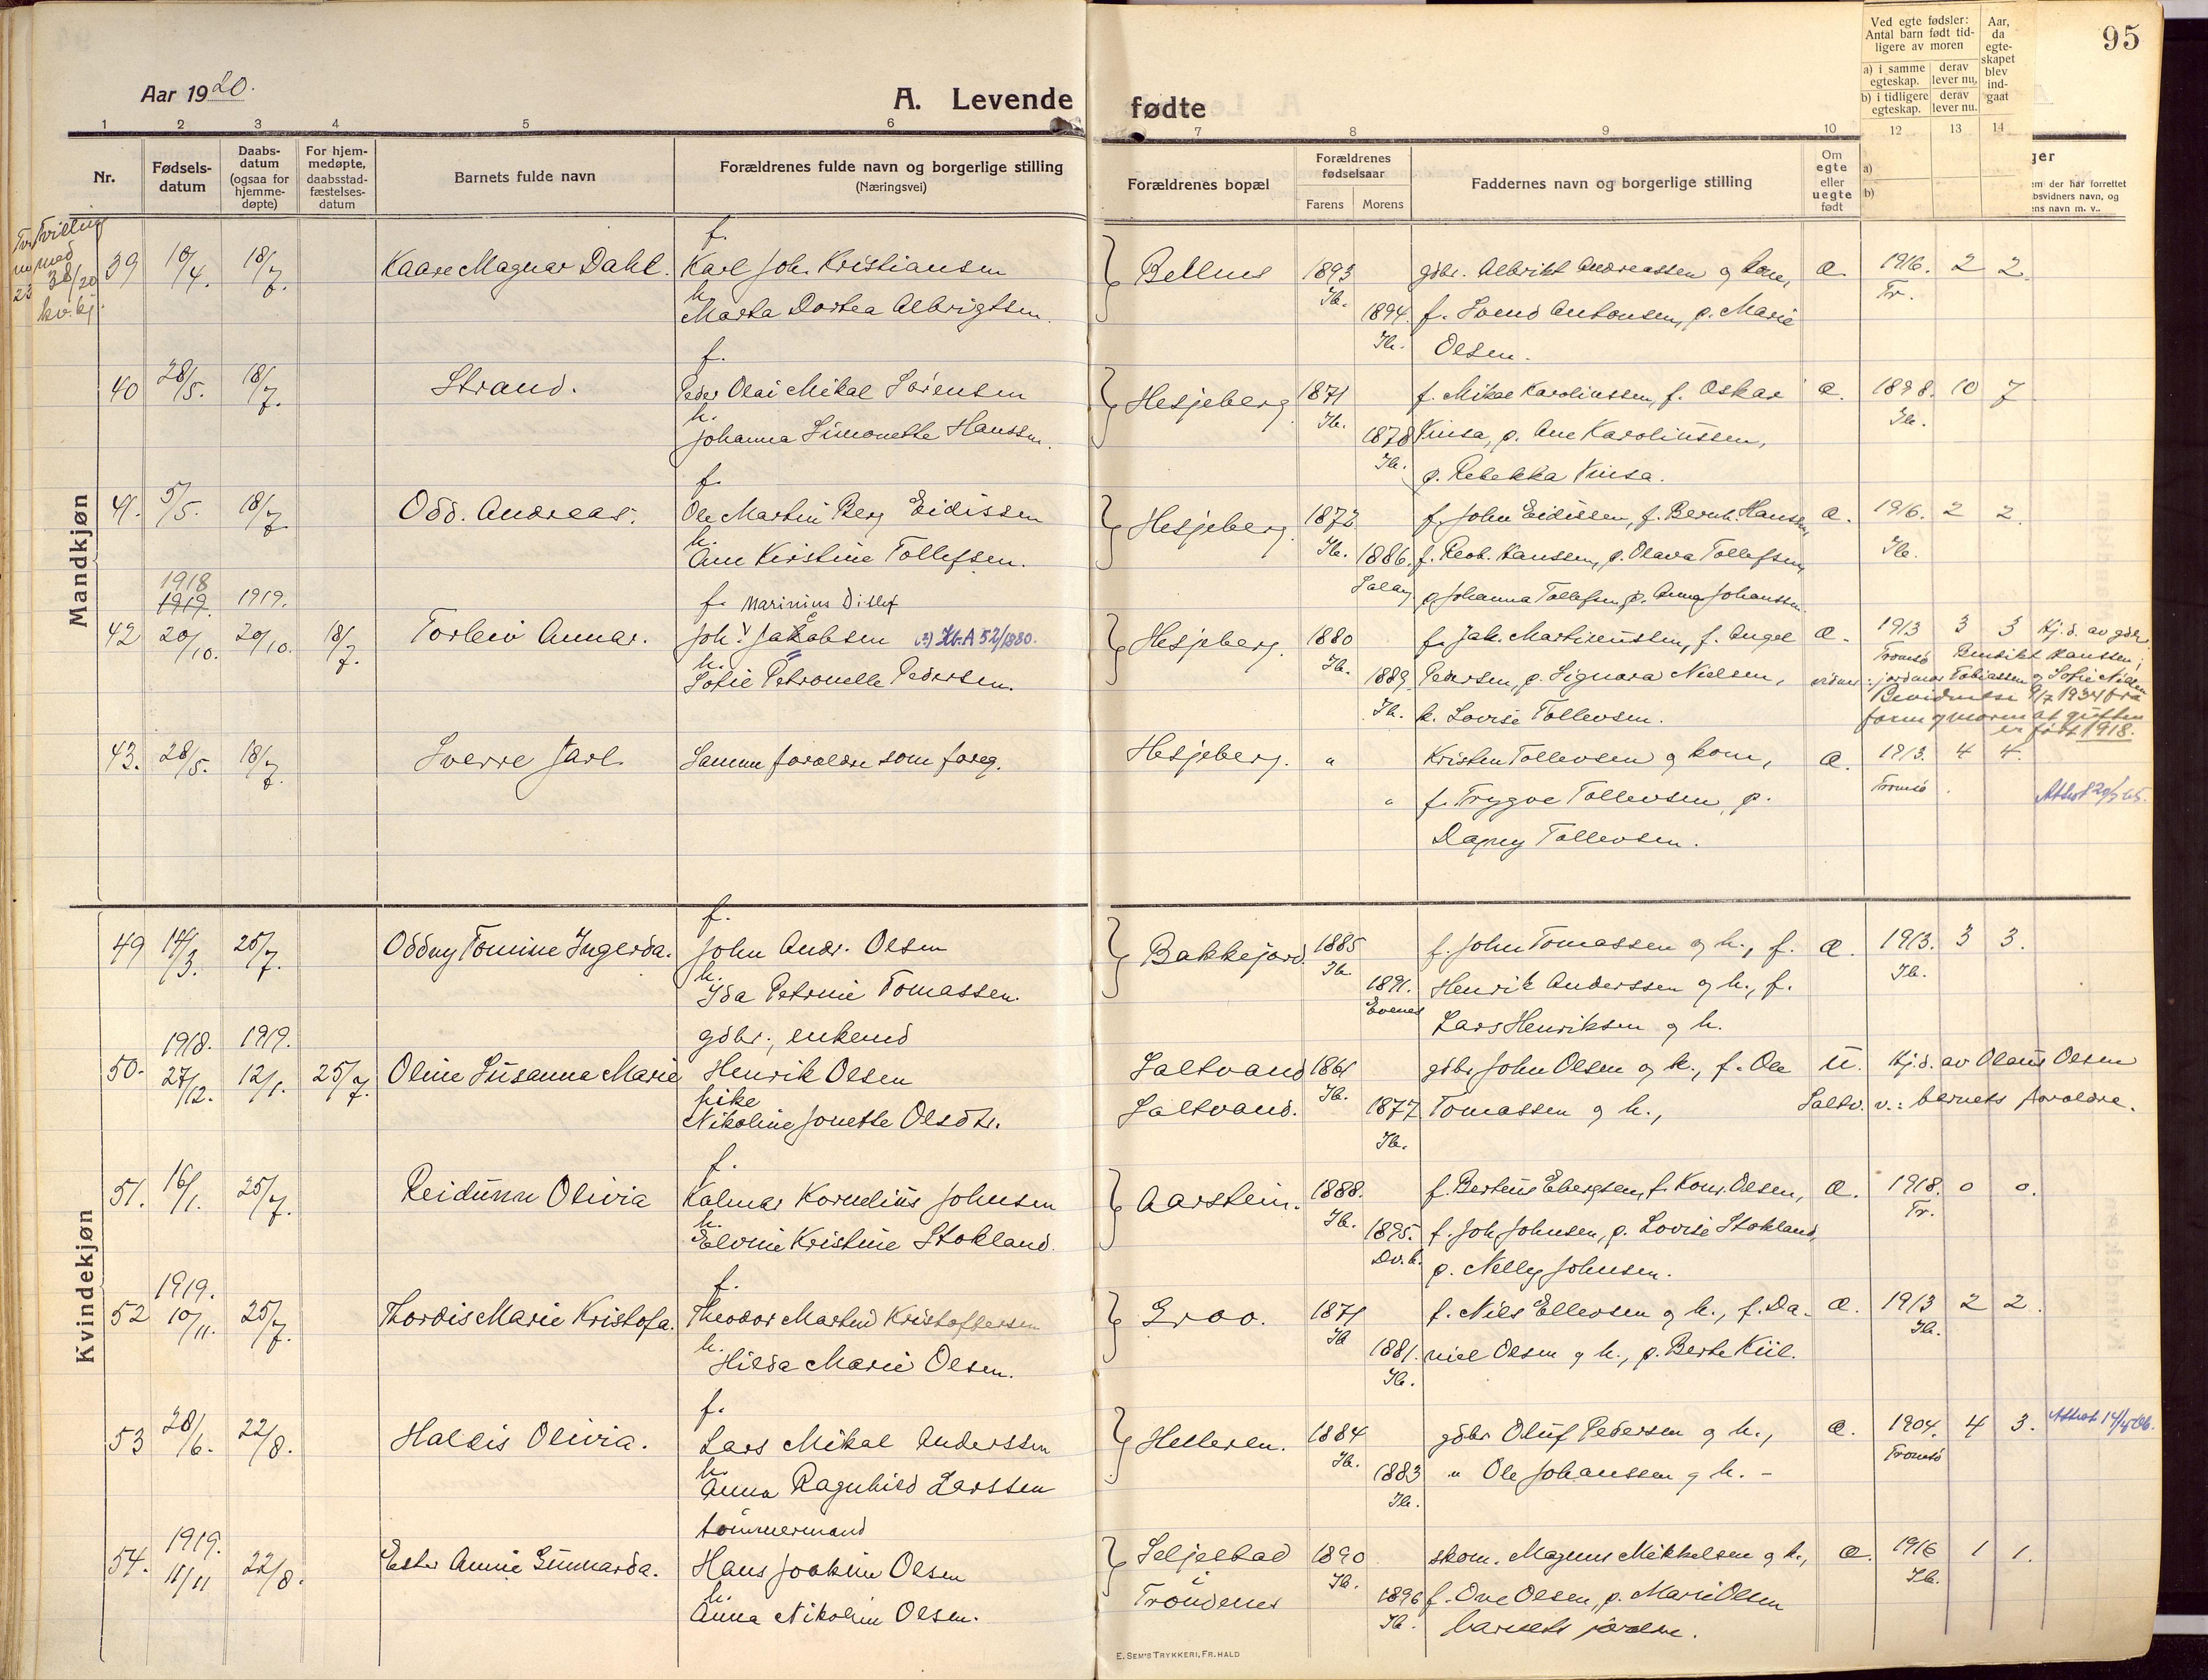 Aar 1920.
A. Levende fødte
95
1 2 3 4 5 6 7 8 9 10 12 13 14
Nr.
Fødsels-
datum
Daabs-
datum
(ogsaa for
hjemme-
døpte)
For hjem-
medøpte,
daabsstad-
fæstelses-
datum
Barnets fulde navn
Forældrenes fulde navn og borgerlige stilling
(Næringsvei)
Forældrenes bopæl
Forældrenes
fødselsaar
Farens Morens
Faddernes navn og borgerlige stilling
Om
egte
eller
uegte
født
Ved egte fødsler:
Antal barn født tid-
ligere av moren
a) i samme
egteskap.
derav
lever nu.
b) i tidligere
egteskap.
derav
lever nu.
Aar,
da
egte-
skapet
blev
ind-
gaat
a)
b)
ger
em der har forrettet
bsvidners navn, og
ens navn m. v..
Mandkjøn
Tvilling
med
38/20
kv.kj.
39 10/4. 18/7. Kaare Magnar Dahl.
f.
Karl Joh. Kristiansen
h.
Marta Dortea Albrigtsen.
Bellnes 1893 Ib. 1894. Ib.
gdbr. Albrikt Andreassen og kone,
f. Svend Antonsen, p. Marie
Olsen.
Æ. 1916. Tr. 2 2.
40 28/5. 18/7. Strand.
f.
Peder Olai Mikal Sørensen
h.
Johanna Simonette Hanssen.
Hesjeberg. 1871 Ib. 1878 Ib.
f. Mikal Karolinssen, f. Oskar
Vinsa, p. Ane Karolinssen,
p. Rebekka Vinsa.
Æ. 1898. Ib. 10 7
41. 5/5. 18/7. Odd. Andreas.
f.
Ole Martin Berg Eidissen
h.
Ane Kirstine Tollefsen.
Hesjeberg. 1872 Ib. 1886. Salang
f. John Eidissen, f. Bernh. Hanssen,
f. Peob. Hanssen, p. Olava Tollefsen,
p. Johanna Tollefsen, p. Anna Johanssen.
Æ. 1916. Ib. 2 2.
42 1918 1919. 20/10. 1919. 20/10. 18/7. Torleiv Annar.
f. Marinius Ditlef
Joh. Jakobsen Kb.A 52/1880.
h.
Sofie Petronelle Pedersen.
Hesjeberg. 1880 Ib. 1889. Ib.
f. Jak. Martinussen, f. Angel
Pedersen, p. Signora Nielsen,
k. Lovise Tollevsen.
Æ. 1913 Tromsø 3 3 Kj.d. av gdbr.
Bendikt Hanssen;
vidner: jordmor Tobiassen og Sofie Nielsen
Bevidnelse 9/7 1934 fra
faren og moren at gutten
er født 1918.
43. 28/5. 18/7. Sverre Jarl
Samme forældre som foreg.
Hesjeberg. " "
Kristen Tollevsen og kone,
f. Trygve Tollevsen, p.
Dagny Tollevsen.
Æ. 1913. Tromsø. 4 4.
Kvindekjøn
49 14/3. 25/7. Oddny Tomine Ingerda.
f.
John Andr. Olsen
h.
Ida Petrine Tomassen.
Bakkejord. 1885 Ib. 1891. Evenes
f. John Tomassen og h., f.
Henrik Anderssen og h., f.
Lars Henriksen og h.
Æ. 1913. Ib. 3 3.
50. 1918. 27/12. 1919. 12/1. 25/7. Oline Susanna Marie
gdbr., enkemd
Henrik Olsen
pike
Nikoline Jonette Olsdtr.
Saltvand
Saltvand. 1861 Ib. 1877 Ib.
gdbr John Olsen og h., f. Ole
Tomassen og h.,
U. Kj.d. av Olaus Olsen
Saltv. v.: barnets forældre.
51. 16/1. 25/7. Reidunn Olivia
f.
Kalmar Kornelius Johnsen
h.
Elvine Kristine Stokland.
Aarstein. 1888. Ib. 1895. Dv.b.
f. Berteus Ebergsen, f. Konr. Olsen,
f. Joh. Johnsen, p. Lovise Stokland,
p. Nelly Johnsen.
Æ. 1918. Tr. 0 0.
52 1919. 10/11. 25/7. Thordis Marie Kristofa.
f.
Theodor Martin Kristoffersen
h.
Hilda Marie Olsen.
Grov. 1871 Ib 1881. Ib.
f. Nils Ellevsen og h., f. Da-
niel Olsen og h., p. Berte Kiil.
Æ. 1913 Ib. 2 2.
53 28/6. 22/8. Haldis Olivia.
f.
Lars Mikal Anderssen
h.
Anna Ragnhild Larssen
Helleren. 1884 Ib. 1883 Ib.
gdbr Oluf Pedersen og h.,
" Ole Johanssen og h. -
Æ. 1904. Tromsø 4 3.
54. 1919. 11/11 22/8. Ester Annie Gunnarda.
tømmermand
Hans Joakim Olsen
h.
Anna Nikoline Olsen.
Seljestad
i
Trondenes 1890 Ib. 1896 Ib.
skom. Magnus Mikkelsen og h.,
f. Ove Olsen, p. Marie Olsen
barnets forældre.
Æ. 1916 Ib. 1 1.
E. SEM'S TRYKKERI, FR. HALD